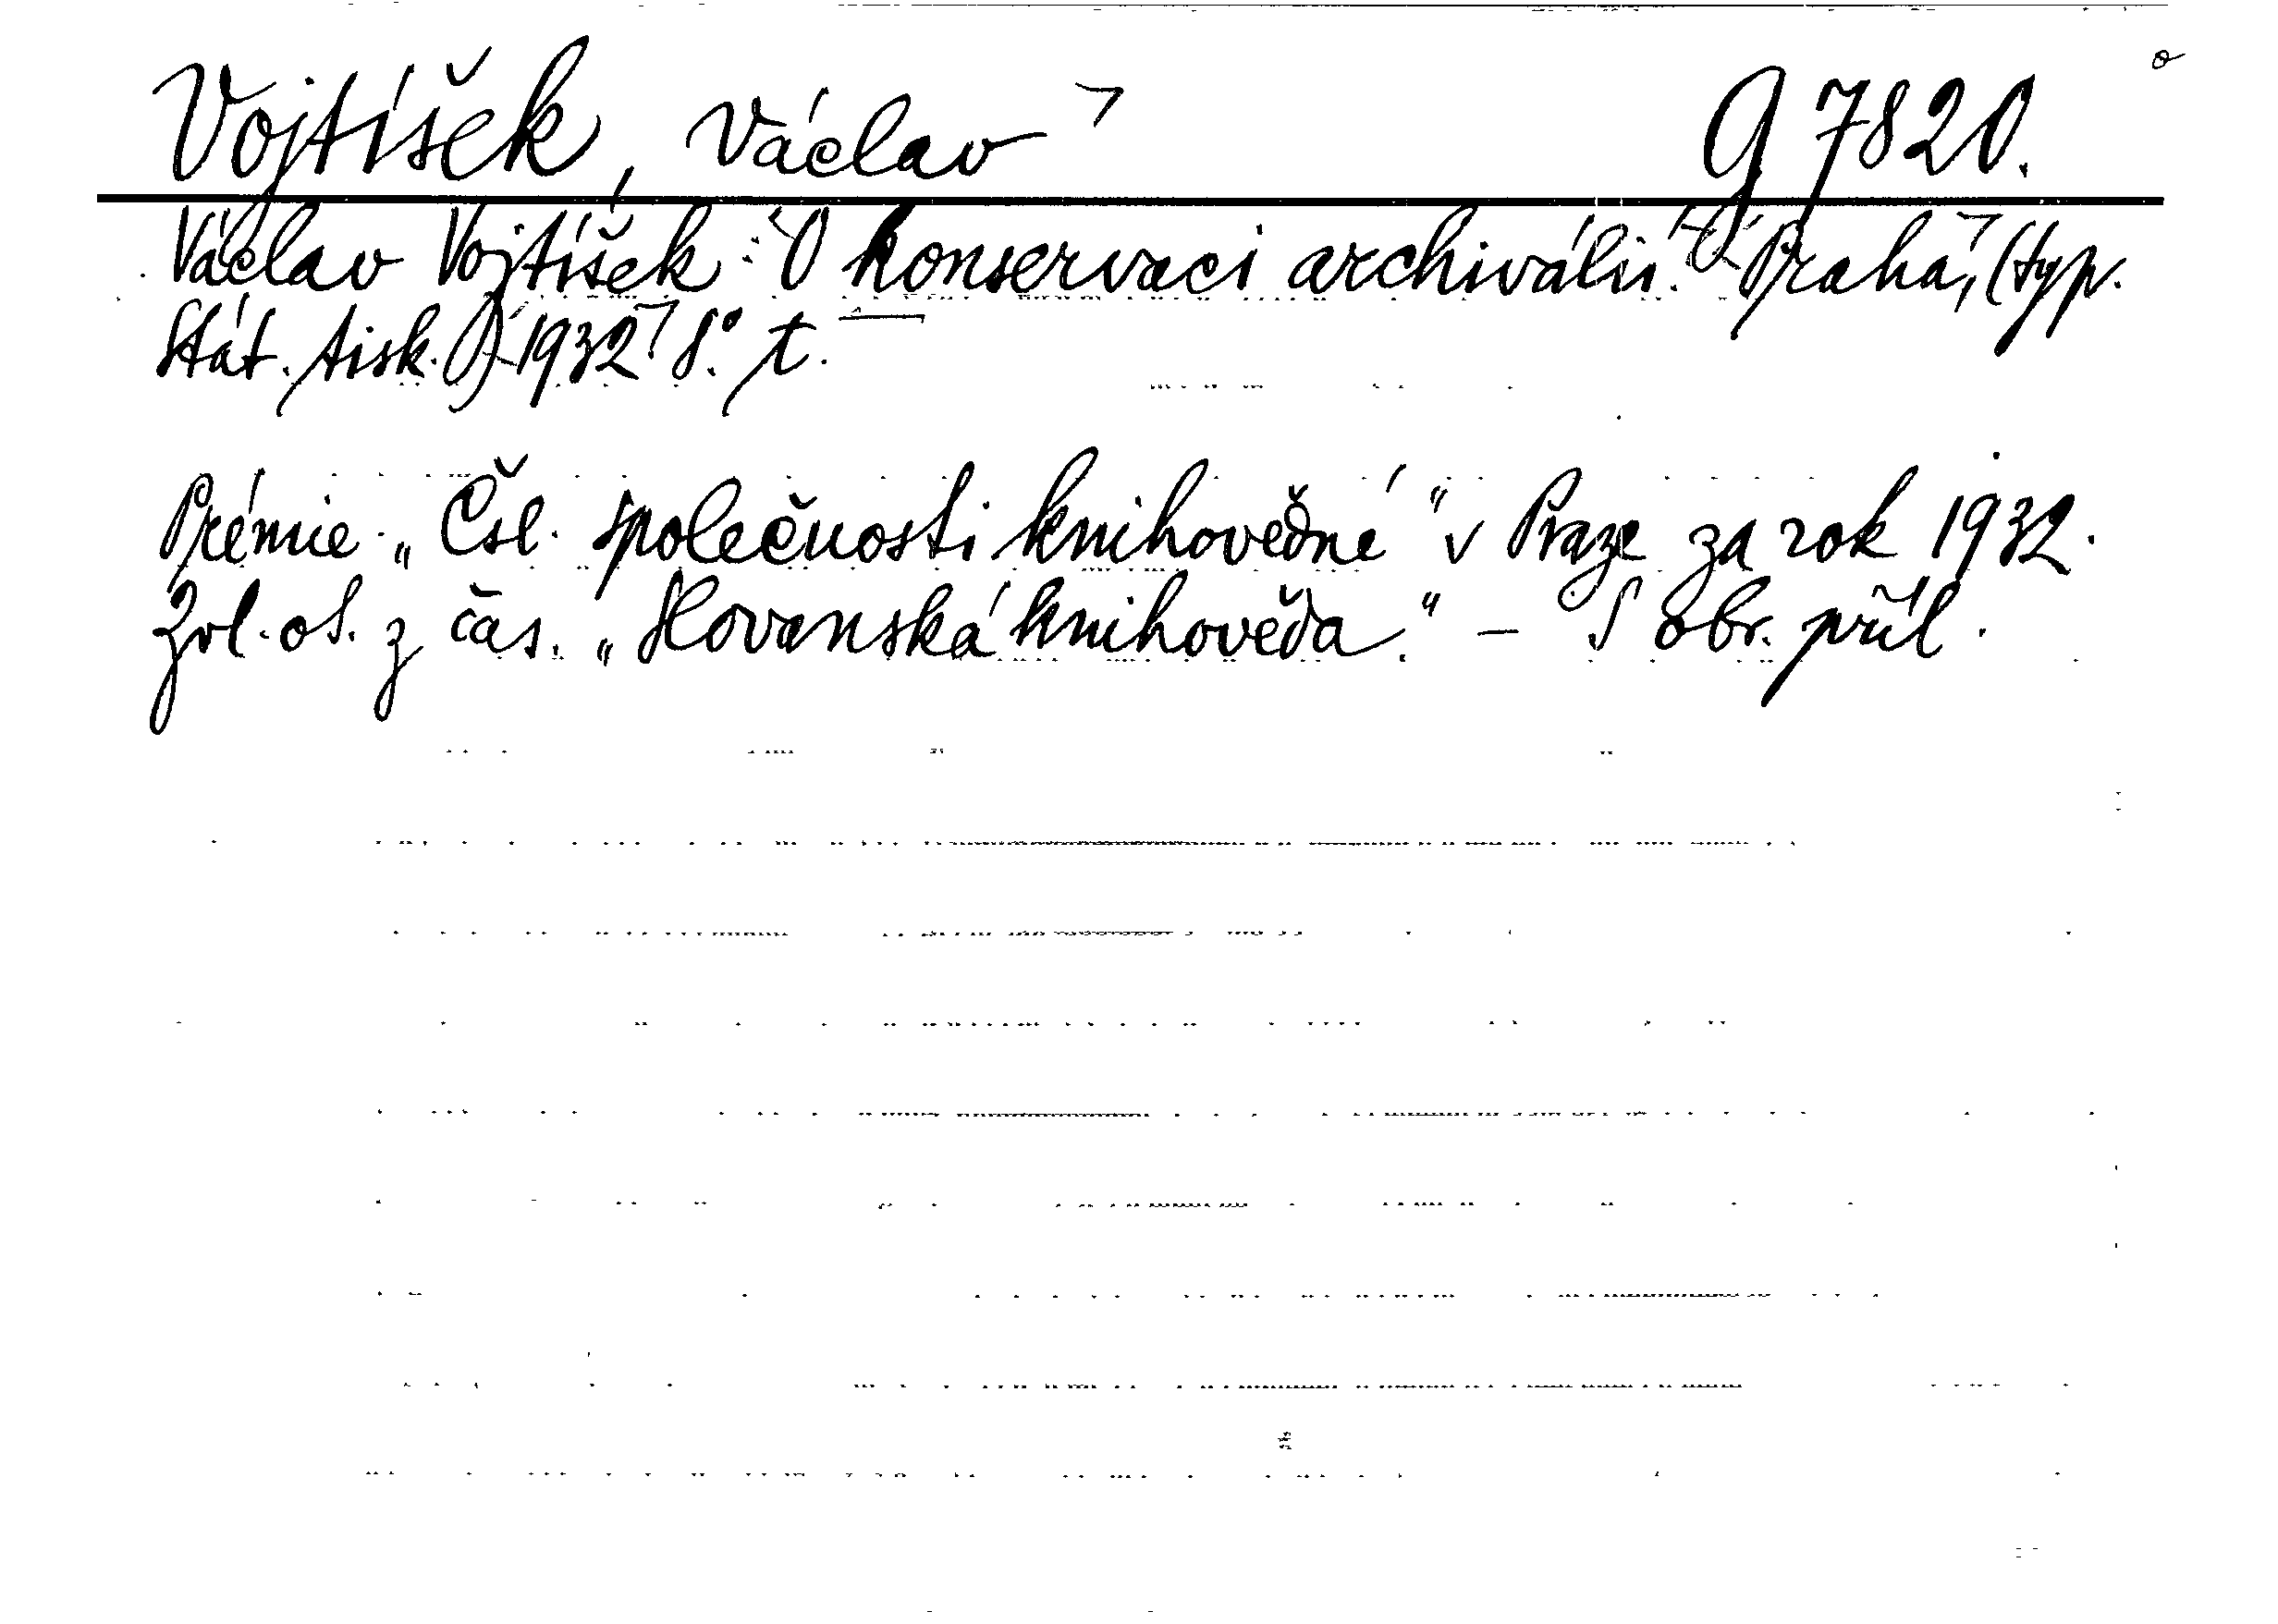 Vojtíšek, Václav G 7820.
Václav Vojtíšek: O konservaci archiválií. Praha, (typ.
Stát. tisk.) 1932 8.° t.
Prémie „Čsl. společnosti knihovědné“ v Praze za rok 1932.
Zvl. ot. z čas. „Slovanská knihověda.“ – S obr. příl.